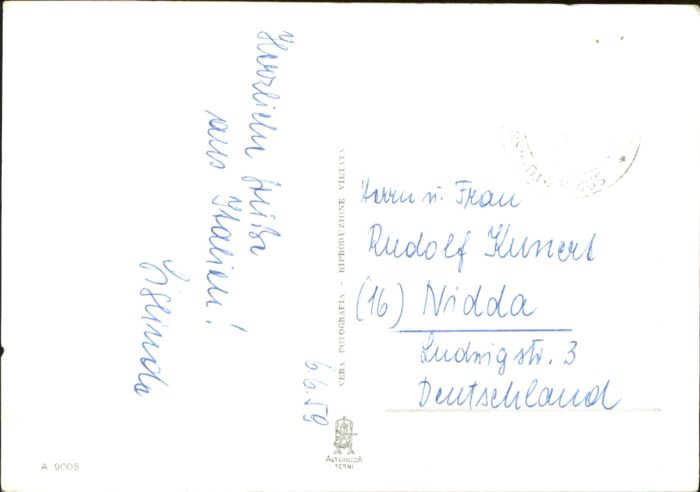 Herzliche Grüße
aus Italien!
6.6.59
VERA FOTOGRAFIA - RIPRODUZIONE VIETATA
Herrn u. Frau
Rudolf Kunert
(16) Nidda
Ludwigstr. 3
Deutschland
ALTEROCCA
TERNI
A 9008